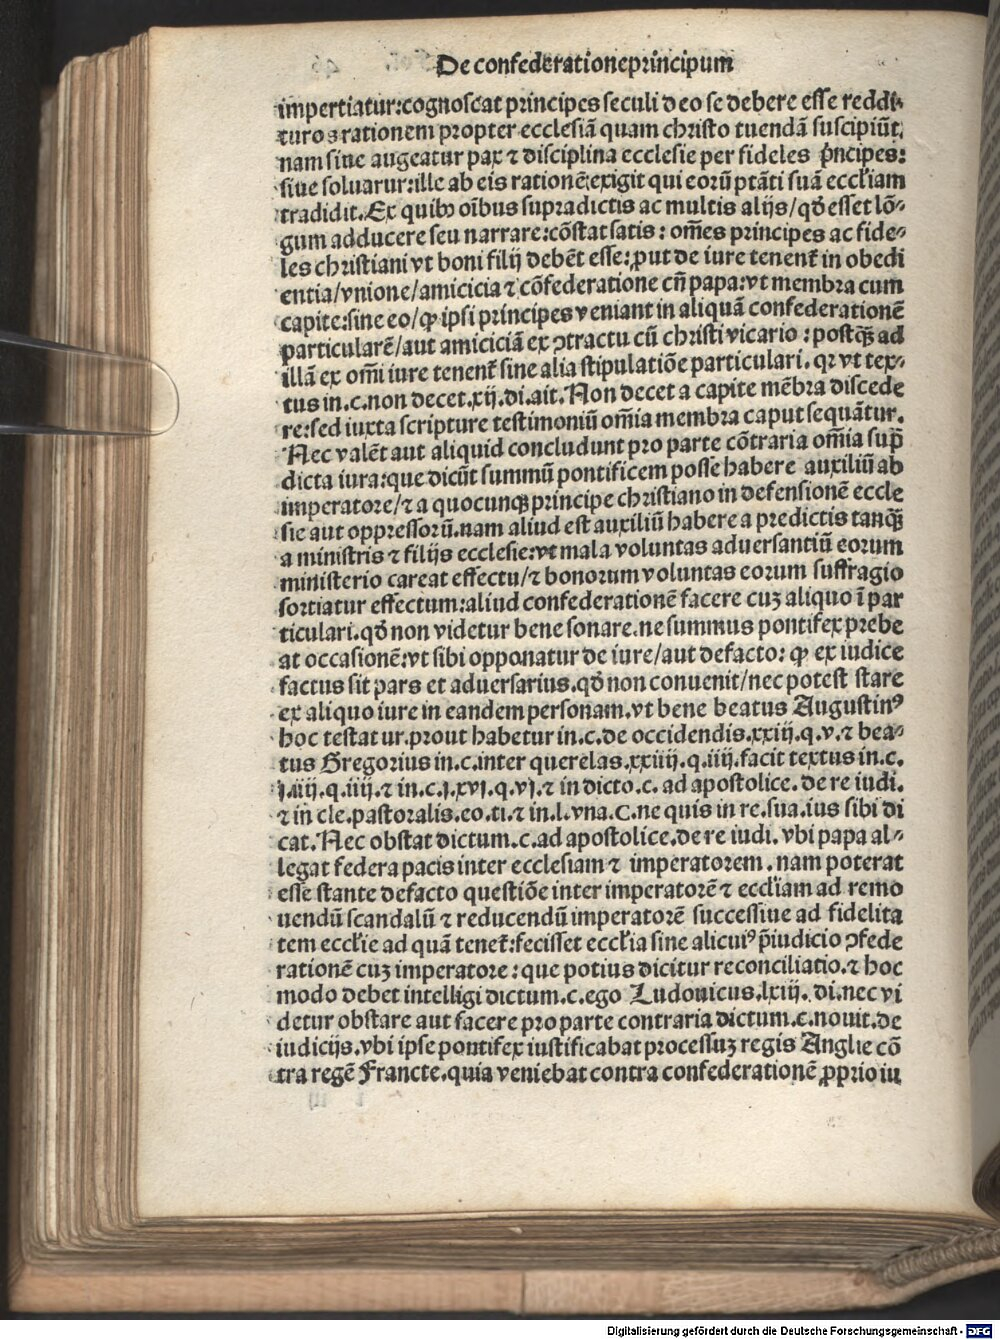 De confederatione principum
impertiatur:cognoscat principes seculi deo se debere esse reddi-
turos rationem propter ecclesiã quam christo tuendã suscipiũt.
nam siue augeatur pax ⁊ disciplina ecclesie per fideles p̃ncipes:
siue soluatur:ille ab eis rationẽ exigit qui eorũ ptãti suã eccl'iam
tradidit. Ex quibꝰ oĩbus supradictis ac multis alijs/qđ esset lõ-
gum adducere seu narrare:cõstat satis: om̃es principes ac fide-
les christiani vt boni filij debẽt esse:ꝓut de iure tenent̃ in obedi
entia/vnione/amicicia ⁊ cõfederatione cũ papa:vt membra cum
capite:sine eo/ꝙ ipsi principes veniant in aliquã confederationẽ
particularẽ/aut amiciciã ex ꝯtractu cũ christi vicario: postq̃ꝫ ad
illã ex om̃i iure tenent̃ sine alia stipulatiõe particulari. qꝛ vt tex-
tus in.c.non decet.xij.di.ait. Non decet a capite mẽbra discede
re:sed iuxta scripture testimoniũ om̃ia membra caput sequãtur.
Nec valẽt aut aliquid concludunt pro parte cõtraria om̃ia sup̃
dicta iura:que dicũt summũ pontificem posse habere auxiliũ ab
imperatore/⁊ a quocunqꝫ principe christiano in defensionẽ eccle
sie aut oppressorũ.nam aliud est auxiliũ habere a predictis tanq̃ꝫ
a ministris ⁊ filijs ecclesie:vt mala voluntas aduersantiũ eorum
ministerio careat effectu/⁊ bonorum voluntas eorum suffragio
sortiatur effectum:aliud confederationẽ facere cuꝫ aliquo ĩ par
ticulari.qđ non videtur bene sonare.ne summus pontifex prebe
at occasionẽ:vt sibi opponatur de iure/aut defacto: ꝙ ex iudice
factus sit pars et aduersarius.qđ non conuenit/nec potest stare
ex aliquo iure in eandem personam.vt bene beatus Augustinꝰ
hoc testatur.prout habetur in.c.de occidendis.xxiij.q.v.⁊ bea-
tus Gregorius in.c.inter querelas.xxiiij.q.iiij.facit textus in.c.
j.iiij.q.iiij.⁊ in.c.j.xvj.q.vj.⁊ in dicto.c. ad apostolice. de re iudi.
⁊ in cle.pastoralis.eo.ti.⁊ in.l.vna.C.ne quis in re.sua.ius sibi di
cat. Nec obstat dictum.c.ad apostolice.de re iudi. vbi papa al-
legat federa pacis inter ecclesiam ⁊ imperatorem. nam poterat
esse stante defacto questiõe inter imperatorẽ ⁊ eccl'iam ad remo
uendũ scandalũ ⁊ reducendũ imperatorẽ successiue ad fidelita
tem eccl'ie ad quã tenet̃:fecisset eccl'ia sine alicuiꝰ p̃iudicio ꝯfede
rationẽ cuꝫ imperatore: que potius dicitur reconciliatio.⁊ hoc
modo debet intelligi dictum.c.ego Ludouicus.lxiij. di.nec vi
detur obstare aut facere pro parte contraria dictum.c.nouit.de
iudicijs.vbi ipse pontifex iustificabat processuꝫ regis Anglie cõ
tra regẽ Francie.quia veniebat contra confederationẽ ꝓprio iu
Digitalisierung gefördert durch die Deutsche Forschungsgemeinschaft - DFG